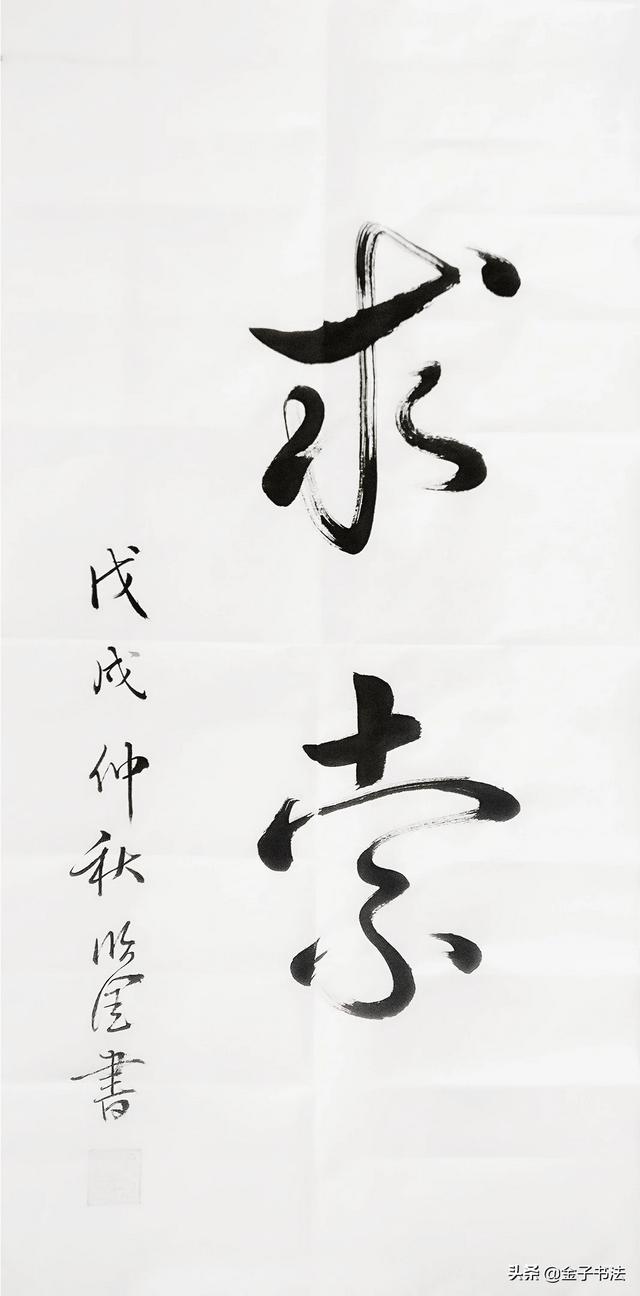 求索
戊戌仲秋
書
头条 @金子书法